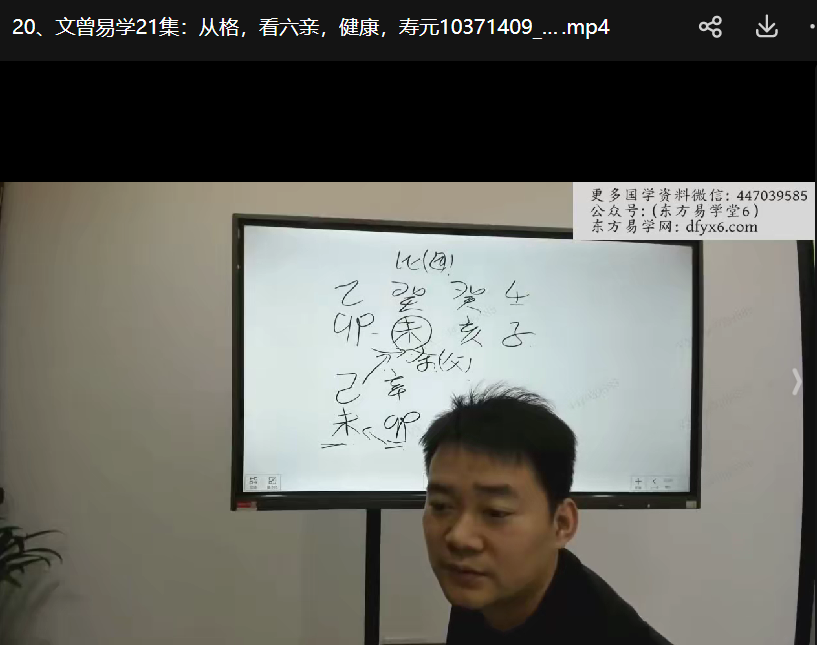 20、文曾易学21集：从格，看六亲，健康，寿元10371409_....mp4
更多国学资料微信：447039585
公众号：(东方易学堂6)
东方易学网：dfyx6.com
比(母)
乙 癸 癸 壬
卯 未 亥 子
(父)
己 辛
未 卯